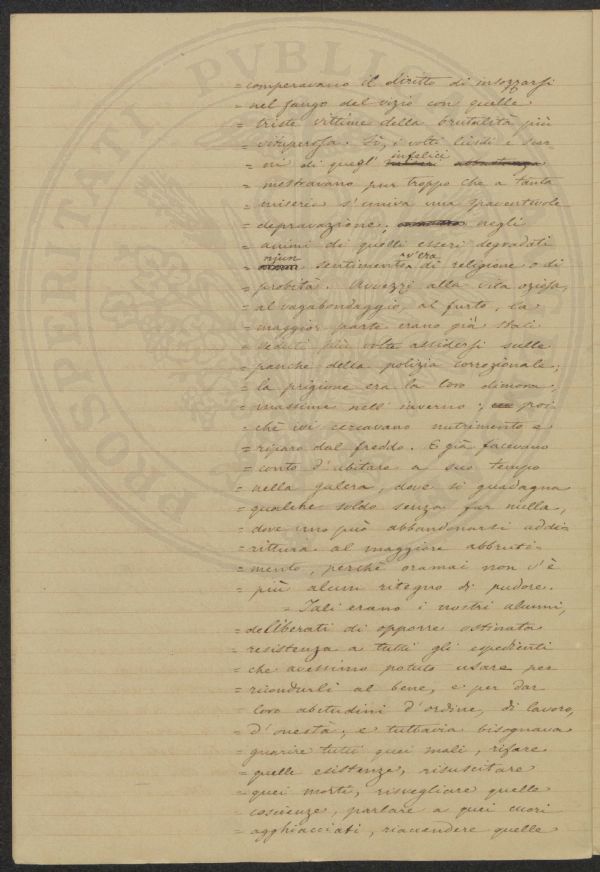 = comperavano il diritto di insozzarsi
= nel fango del vizio con quelle
= triste vittime della brutalità più
= vituperosa. Sì, i volti lividi e scar
= ni di quegl' infelici
= mostravano pur troppo che a tanta
= miseria s'univa una spaventevole
= depravazione; negli
= animi di quelli esseri degradati
= niun sentimento v'era di religione o di
= probità. Avvezzi alla vita oziosa,
= al vagabondaggio, al furto, la
= maggior parte erano già stati
= veduti più volte assidersi sulle
= panche della polizia correzionale;
= la prigione era la loro dimora
= massime nell' inverno; poi
= chè ivi cercavano nutrimento e
= riparo dal freddo. E già facevano
= conto d'abitare a suo tempo
= nella galera, dove si guadagna
= qualche soldo senza far nulla,
= dove uno può abbandonarsi addi
= rittura al maggiore abbruti-
= mento, perchè oramai non v'è
= più alcun ritegno di pudore.
= Tali erano i nostri alunni,
= deliberati di opporre ostinata
= resistenza a tutti gli espedienti
= che avessimo potuto usare per
= ricondurli al bene, e per dar
= loro abitudini d'ordine, di lavoro,
= d'onestà; e tuttavia bisognava
= guarire tutti quei mali, rifare
= quelle esistenze, risuscitare
= quei morti, risvegliare quelle
= coscienze, parlare a quei cuori
= agghiacciati, riaccendere quelle
PROSPERITATI PVBLI